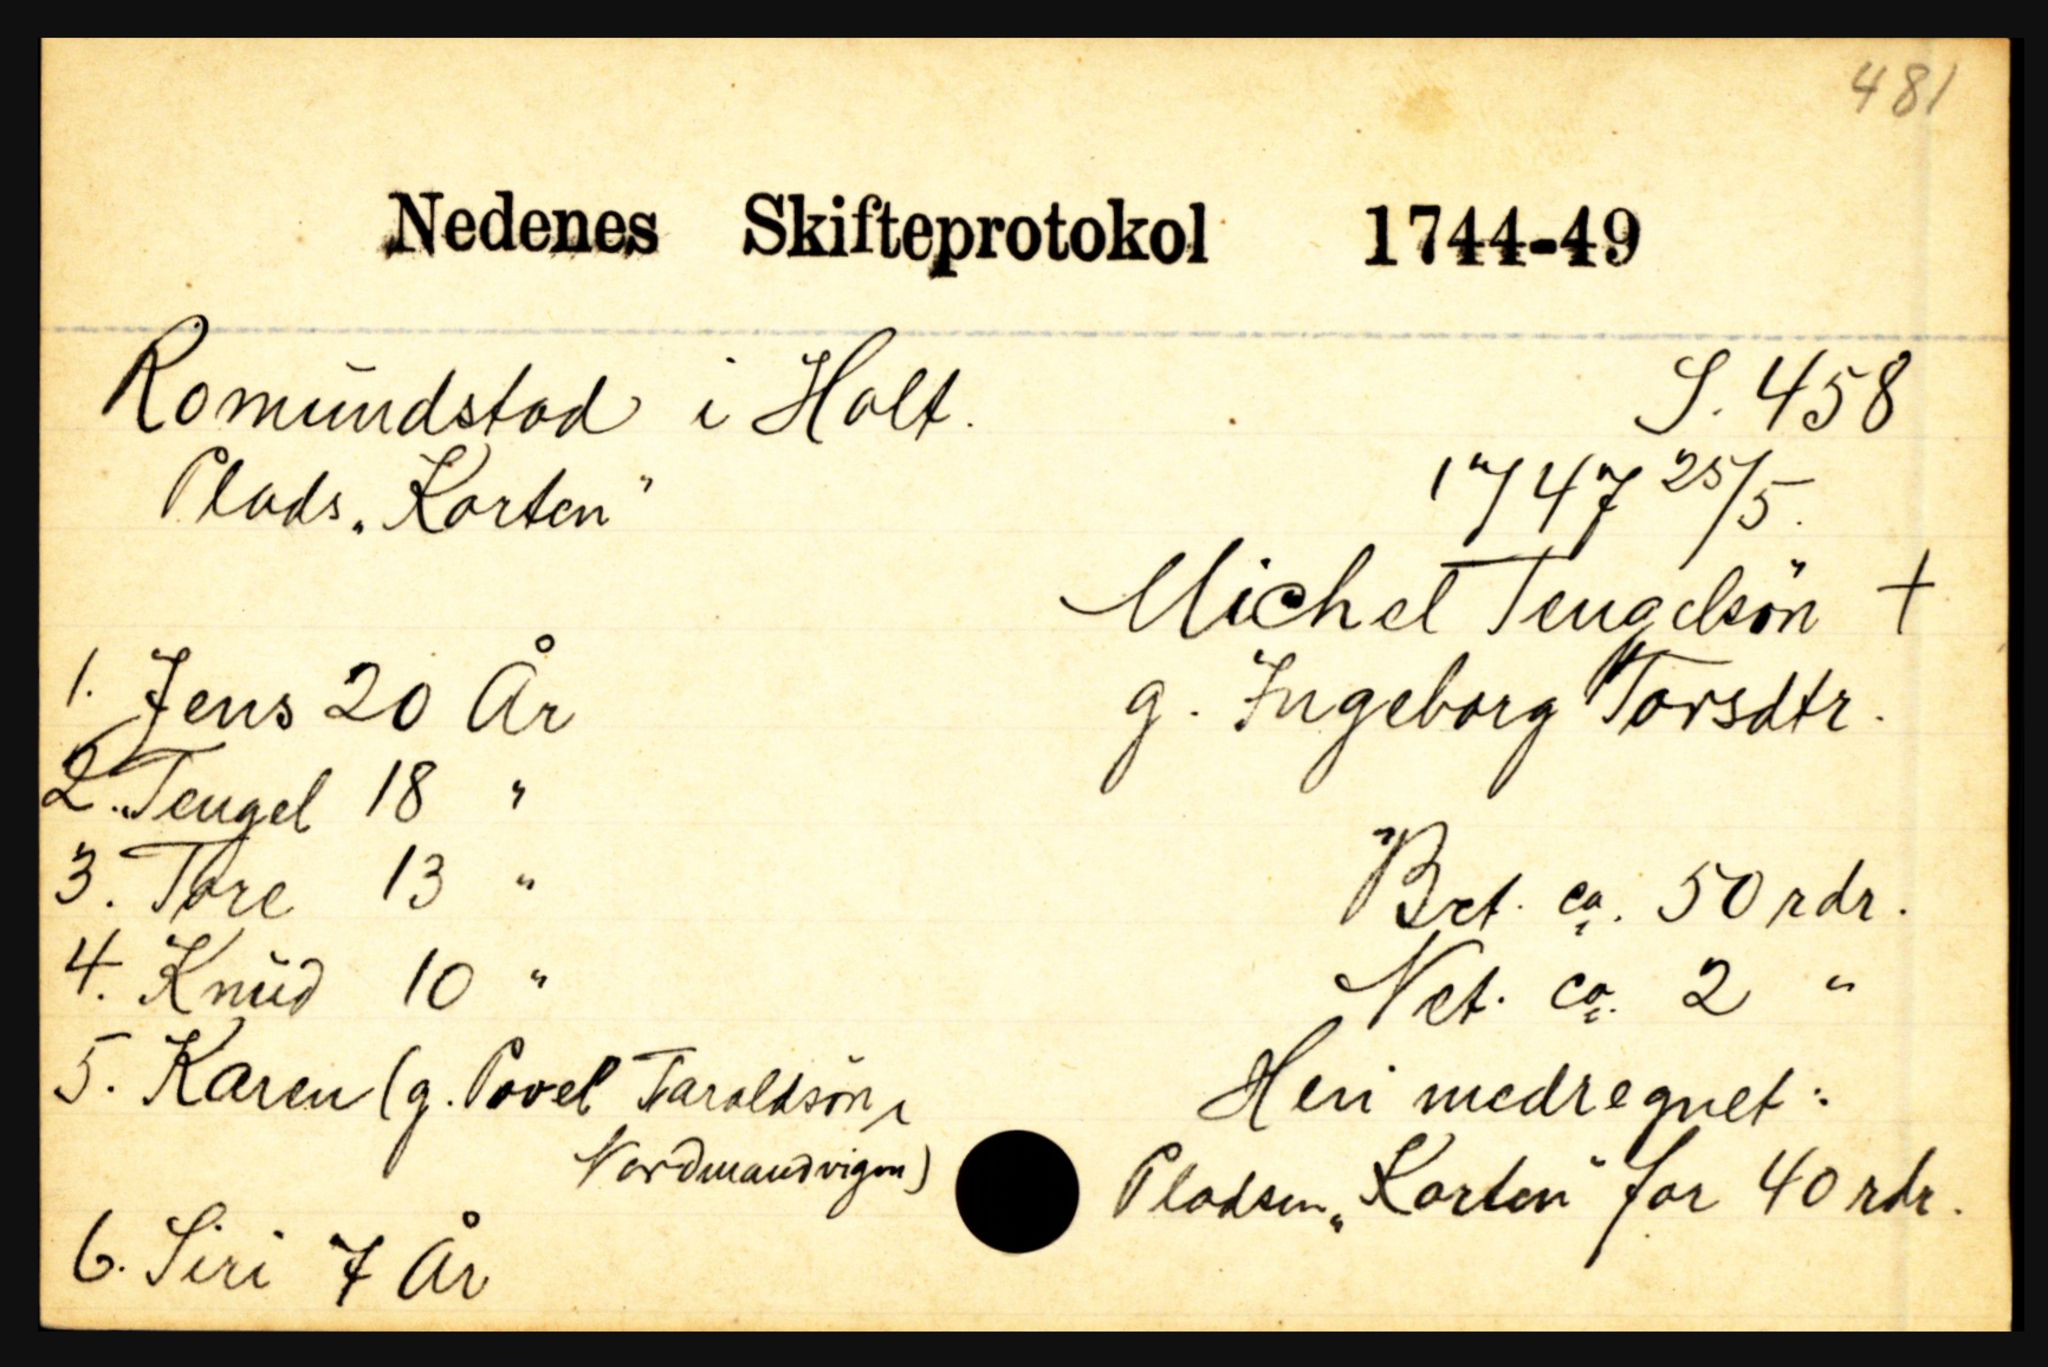 481
Nedenes Skifteprotokol 1744-49
Romundstad i Holt.
S. 458
Plads „Korten"
1747 25/5.
Michel Tengelsön †
g. Ingeborg Torsdtr.
1. Jens 20 År
2. Tengel 18 "
3. Tore 13 "
4. Knud 10 "
5. Karen (g. Povel Taraldsön,
Nordmandvigen)
6. Siri 7 År
Bet. ca. 50 rdr.
Net. ca. 2 "
Heri medregnet:
Pladsen „Korten" for 40 rdr.